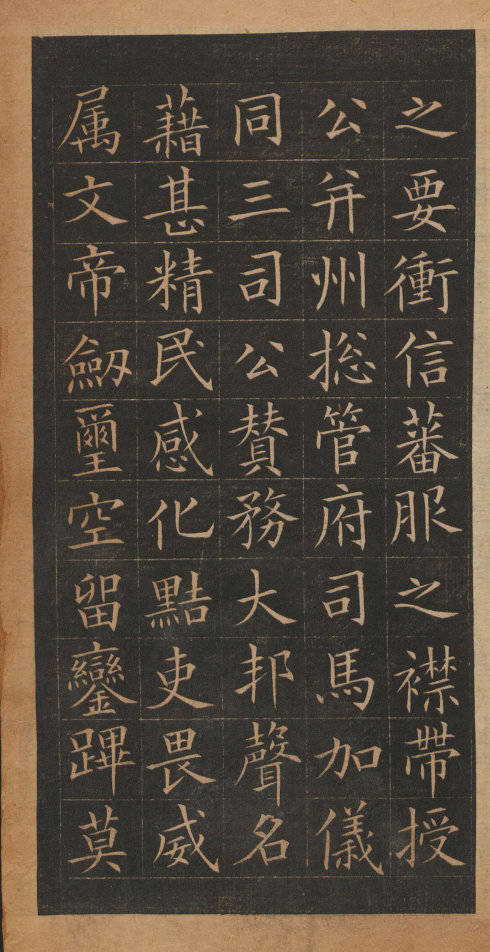 之要衝信蕃服之襟帶授
公并州揔管府司馬加儀
同三司公賛務大邦聲名
藉甚精民感化黠吏畏威
属文帝劔璽空留鑾蹕莫